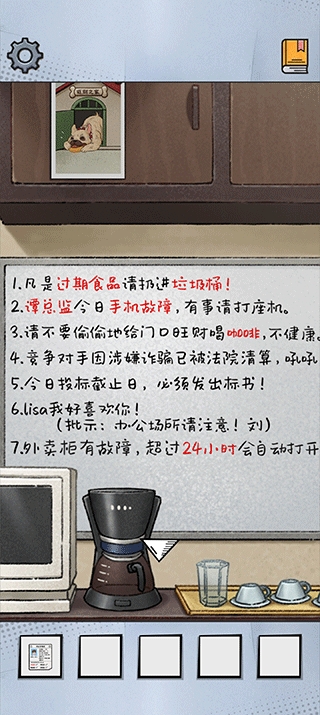 1.凡是过期食品请扔进垃圾桶！
2.谭总监今日手机故障，有事请打座机。
3.请不要偷偷地给门口旺财喝咖啡，不健康。
4.竞争对手因涉嫌诈骗已被法院清算，吼吼
5.今日投标截止日，必须发出标书！
6.lisa我好喜欢你！
（批示：办公场所请注意！刘）
7.外卖柜有故障，超过24小时会自动打开